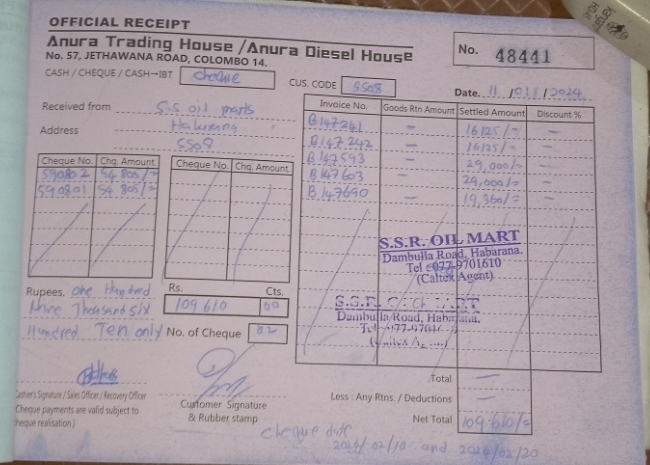 OFFICIAL RECEIPT
Anura Trading House /Anura Diesel House
No. 57, JETHAWANA ROAD, COLOMBO 14.
No. 48441
CASH / CHEQUE / CASH→IBT cheque
CUS. CODE SS08
Date. 11/01/2024
Received from S.S oil marts
Address Habarana
SS08
Cheque No. Chq. Amount Cheque No. Chq. Amount
590802 54 805/=
590801 54 805/=
Invoice No. Goods Rtn Amount Settled Amount Discount %
B 147241 – 16125/= –
B 147242 – 16125/= –
B 147593 – 29,000/= –
B 147603 – 29,000/= –
B 147690 – 19,360/= –
S.S.R. OIL MART
Dambulla Road, Habarana.
Tel :077-9701610
(Caltex Agent)
S.S.R. MART
Dambulla Road, Habarana.
Rupees. One Hundred
Nine Thousand six
Hundred Ten only
Rs. Cts.
109 610 00
No. of Cheque 02
Cashier's Signature / Sales Officer / Recovery Officer
(Cheque payments are valid subject to
cheque realisation)
Customer Signature
& Rubber stamp
Total –
Less : Any Rtns. / Deductions –
Net Total 109 610/=
cheque date
2024/02/10 and 2024/02/20